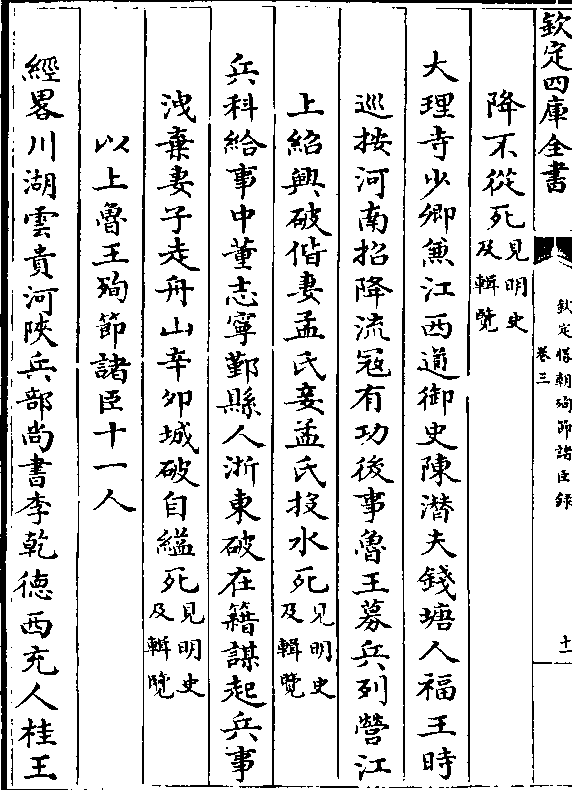 欽定四庫全書
欽定勝朝殉節諸臣録
卷三
十一
降不從死見明史及輯覽
大理寺少卿兼江西道御史陳潛夫錢塘人福王時
巡按河南招降流寇有功後事魯王募兵列營江
上紹興破偕妻孟氏妾孟氏投水死見明史及輯覽
兵科給事中董志寧鄞縣人浙東破在籍謀起兵事
洩棄妻子走舟山辛卯城破自縊死見明史及輯覽
以上魯王殉節諸臣十一人
經畧川湖雲貴河陜兵部尚書李乾德西充人桂王